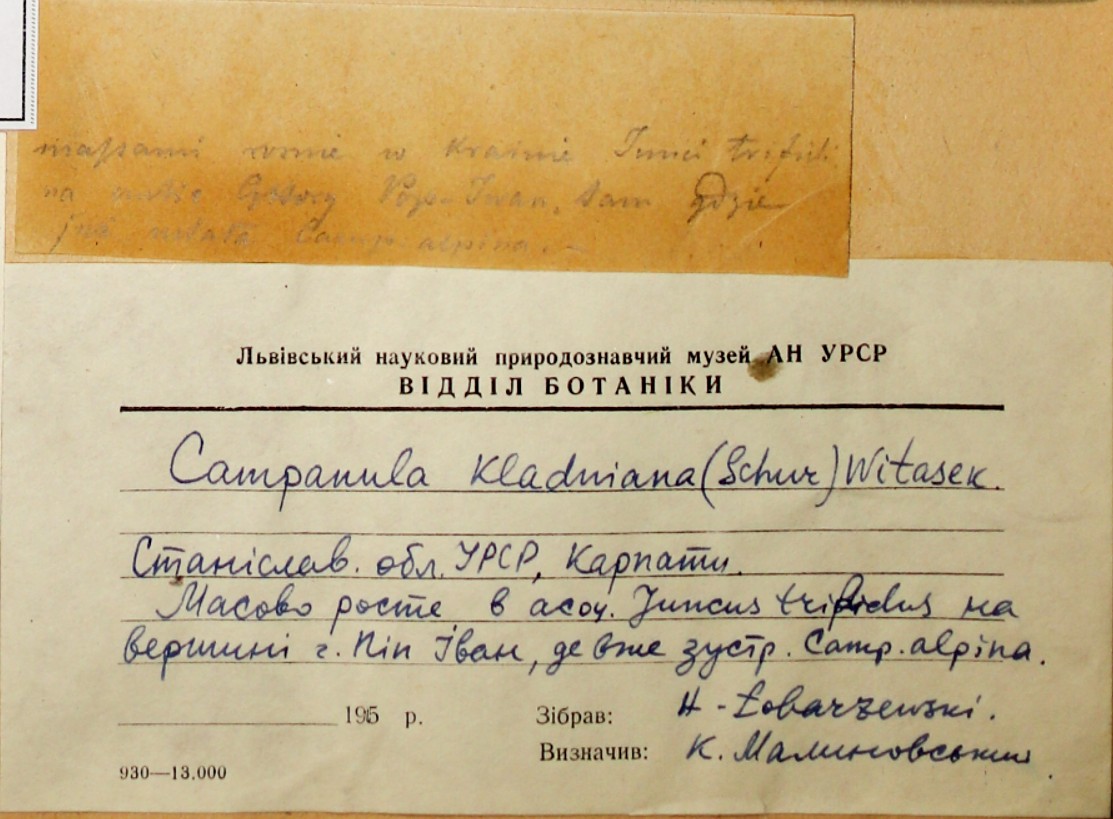 massami rośnie w Krainie Junci trifidi
na Pop-Iwan, tam gdzie
już Camp alpina. –
Львівський науковий природознавчий музей АН УРСР
ВІДДІЛ БОТАНІКИ
Campanula Kladniana (Schur) Witasek.
Станіслав. обл. УРСР, Карпати.
Масово росте в асоц. Juncus trifidus на
вершині г. Піп Іван, де вже зустр. Camp. alpina.
195 р.
Зібрав: H - Łobarzewski.
Визначив: К. Малиновський
930—13.000